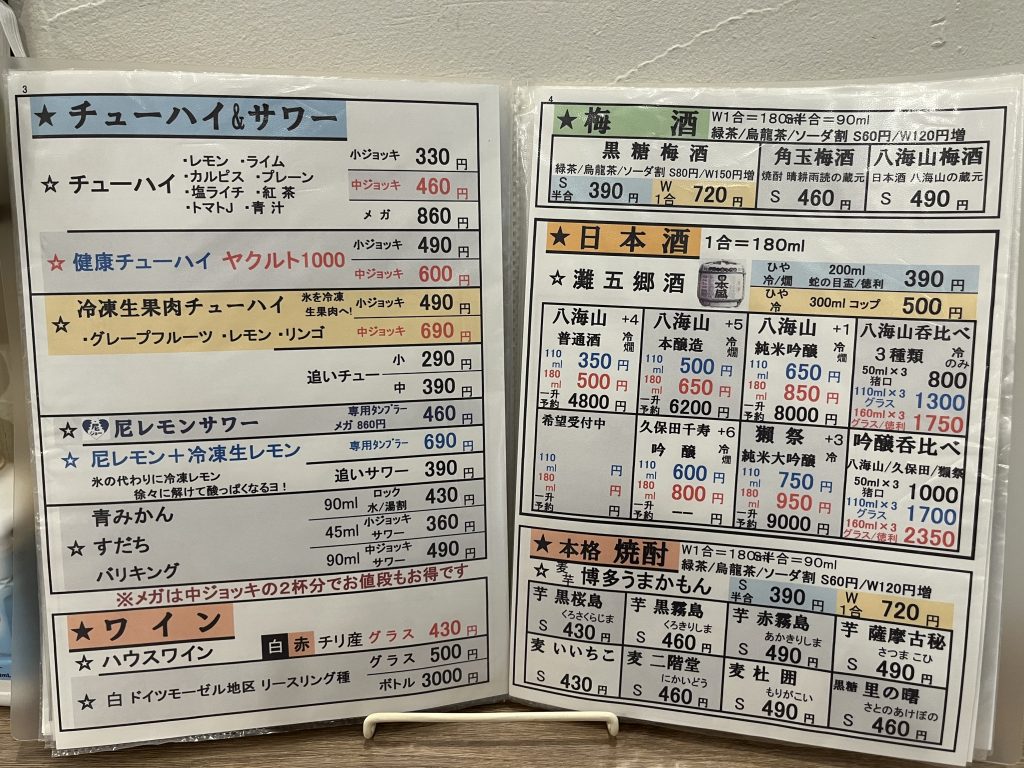 3
★ チューハイ&サワー
☆ チューハイ
・レモン ・ライム
・カルピス ・プレーン
・塩ライチ ・紅茶
・トマトJ ・青汁
小ジョッキ 330円
中ジョッキ 460円
メガ 860円
☆ 健康チューハイ ヤクルト1000
小ジョッキ 490円
中ジョッキ 600円
☆ 冷凍生果肉チューハイ 氷を冷凍生果肉へ!
・グレープフルーツ ・レモン ・リンゴ
小ジョッキ 490円
中ジョッキ 690円
追いチュー
小 290円
中 390円
☆ 尼レモンサワー 専用タンブラー 460円
メガ 860円
☆ 尼レモン+冷凍生レモン 専用タンブラー 690円
氷の代わりに冷凍レモン
徐々に解けて酸っぱくなるヨ!
追いサワー 390円
☆ 青みかん
すだち
バリキング
90ml ロック 水/湯割 430円
45ml 小ジョッキ サワー 360円
90ml 中ジョッキ サワー 490円
※メガは中ジョッキの2杯分でお値段もお得です
★ワイン
☆ ハウスワイン 白 赤 チリ産 グラス 430円
☆ 白 ドイツモーゼル地区 リースリング種
グラス 500円
ボトル 3000円
4
★ 梅酒 W1合=180ml S半合=90ml
緑茶/烏龍茶/ソーダ割 S60円/W120円増
黒糖梅酒
緑茶/烏龍茶/ソーダ割 S80円/W150円増
S半合 390円 W1合 720円
角玉梅酒
焼酎 晴耕雨読の蔵元
S 460円
八海山梅酒
日本酒 八海山の蔵元
S 490円
★日本酒 1合=180ml
☆ 灘五郷酒
日本盛
ひや 冷/燗 200ml 蛇の目盃/徳利 390円
ひや 冷 300ml コップ 500円
八海山 +4
普通酒 冷 燗
110ml 350円
180ml 500円
一升予約 4800円
八海山 +5
本醸造 冷 燗
110ml 500円
180ml 650円
一升予約 6200円
八海山 +1
純米吟醸 冷
110ml 650円
180ml 850円
一升予約 8000円
八海山呑比べ
3種類 冷のみ
50ml×3 猪口 800
110ml×3 グラス 1300
160ml×3 グラス/徳利 1750
希望受付中
110ml 円
180ml 円
一升予約 円
久保田千寿 +6
吟醸 冷 燗
110ml 600円
180ml 800円
一升予約 ーー 円
獺祭 +3
純米大吟醸 冷
110ml 750円
180ml 950円
一升予約 9000円
吟醸呑比べ
八海山/久保田/獺祭
50ml×3 猪口 1000
110ml×3 グラス 1700
160ml×3 グラス/徳利 2350
★本格焼酎 W1合=180ml S半合=90ml
緑茶/烏龍茶/ソーダ割 S60円/W120円増
☆ 麦 芋 博多うまかもん S半合 390円 W1合 720円
芋 黒桜島
くろさくらじま
S 430円
芋 黒霧島
くろきりしま
S 460円
芋 赤霧島
あかきりしま
S 490円
芋 薩摩古秘
さつま こひ
S 490円
麦 いいちこ
S 430円
麦 二階堂
にかいどう
S 460円
麦 杜囲
もりがこい
S 490円
黒糖 里の曙
さとのあけぼの
S 460円